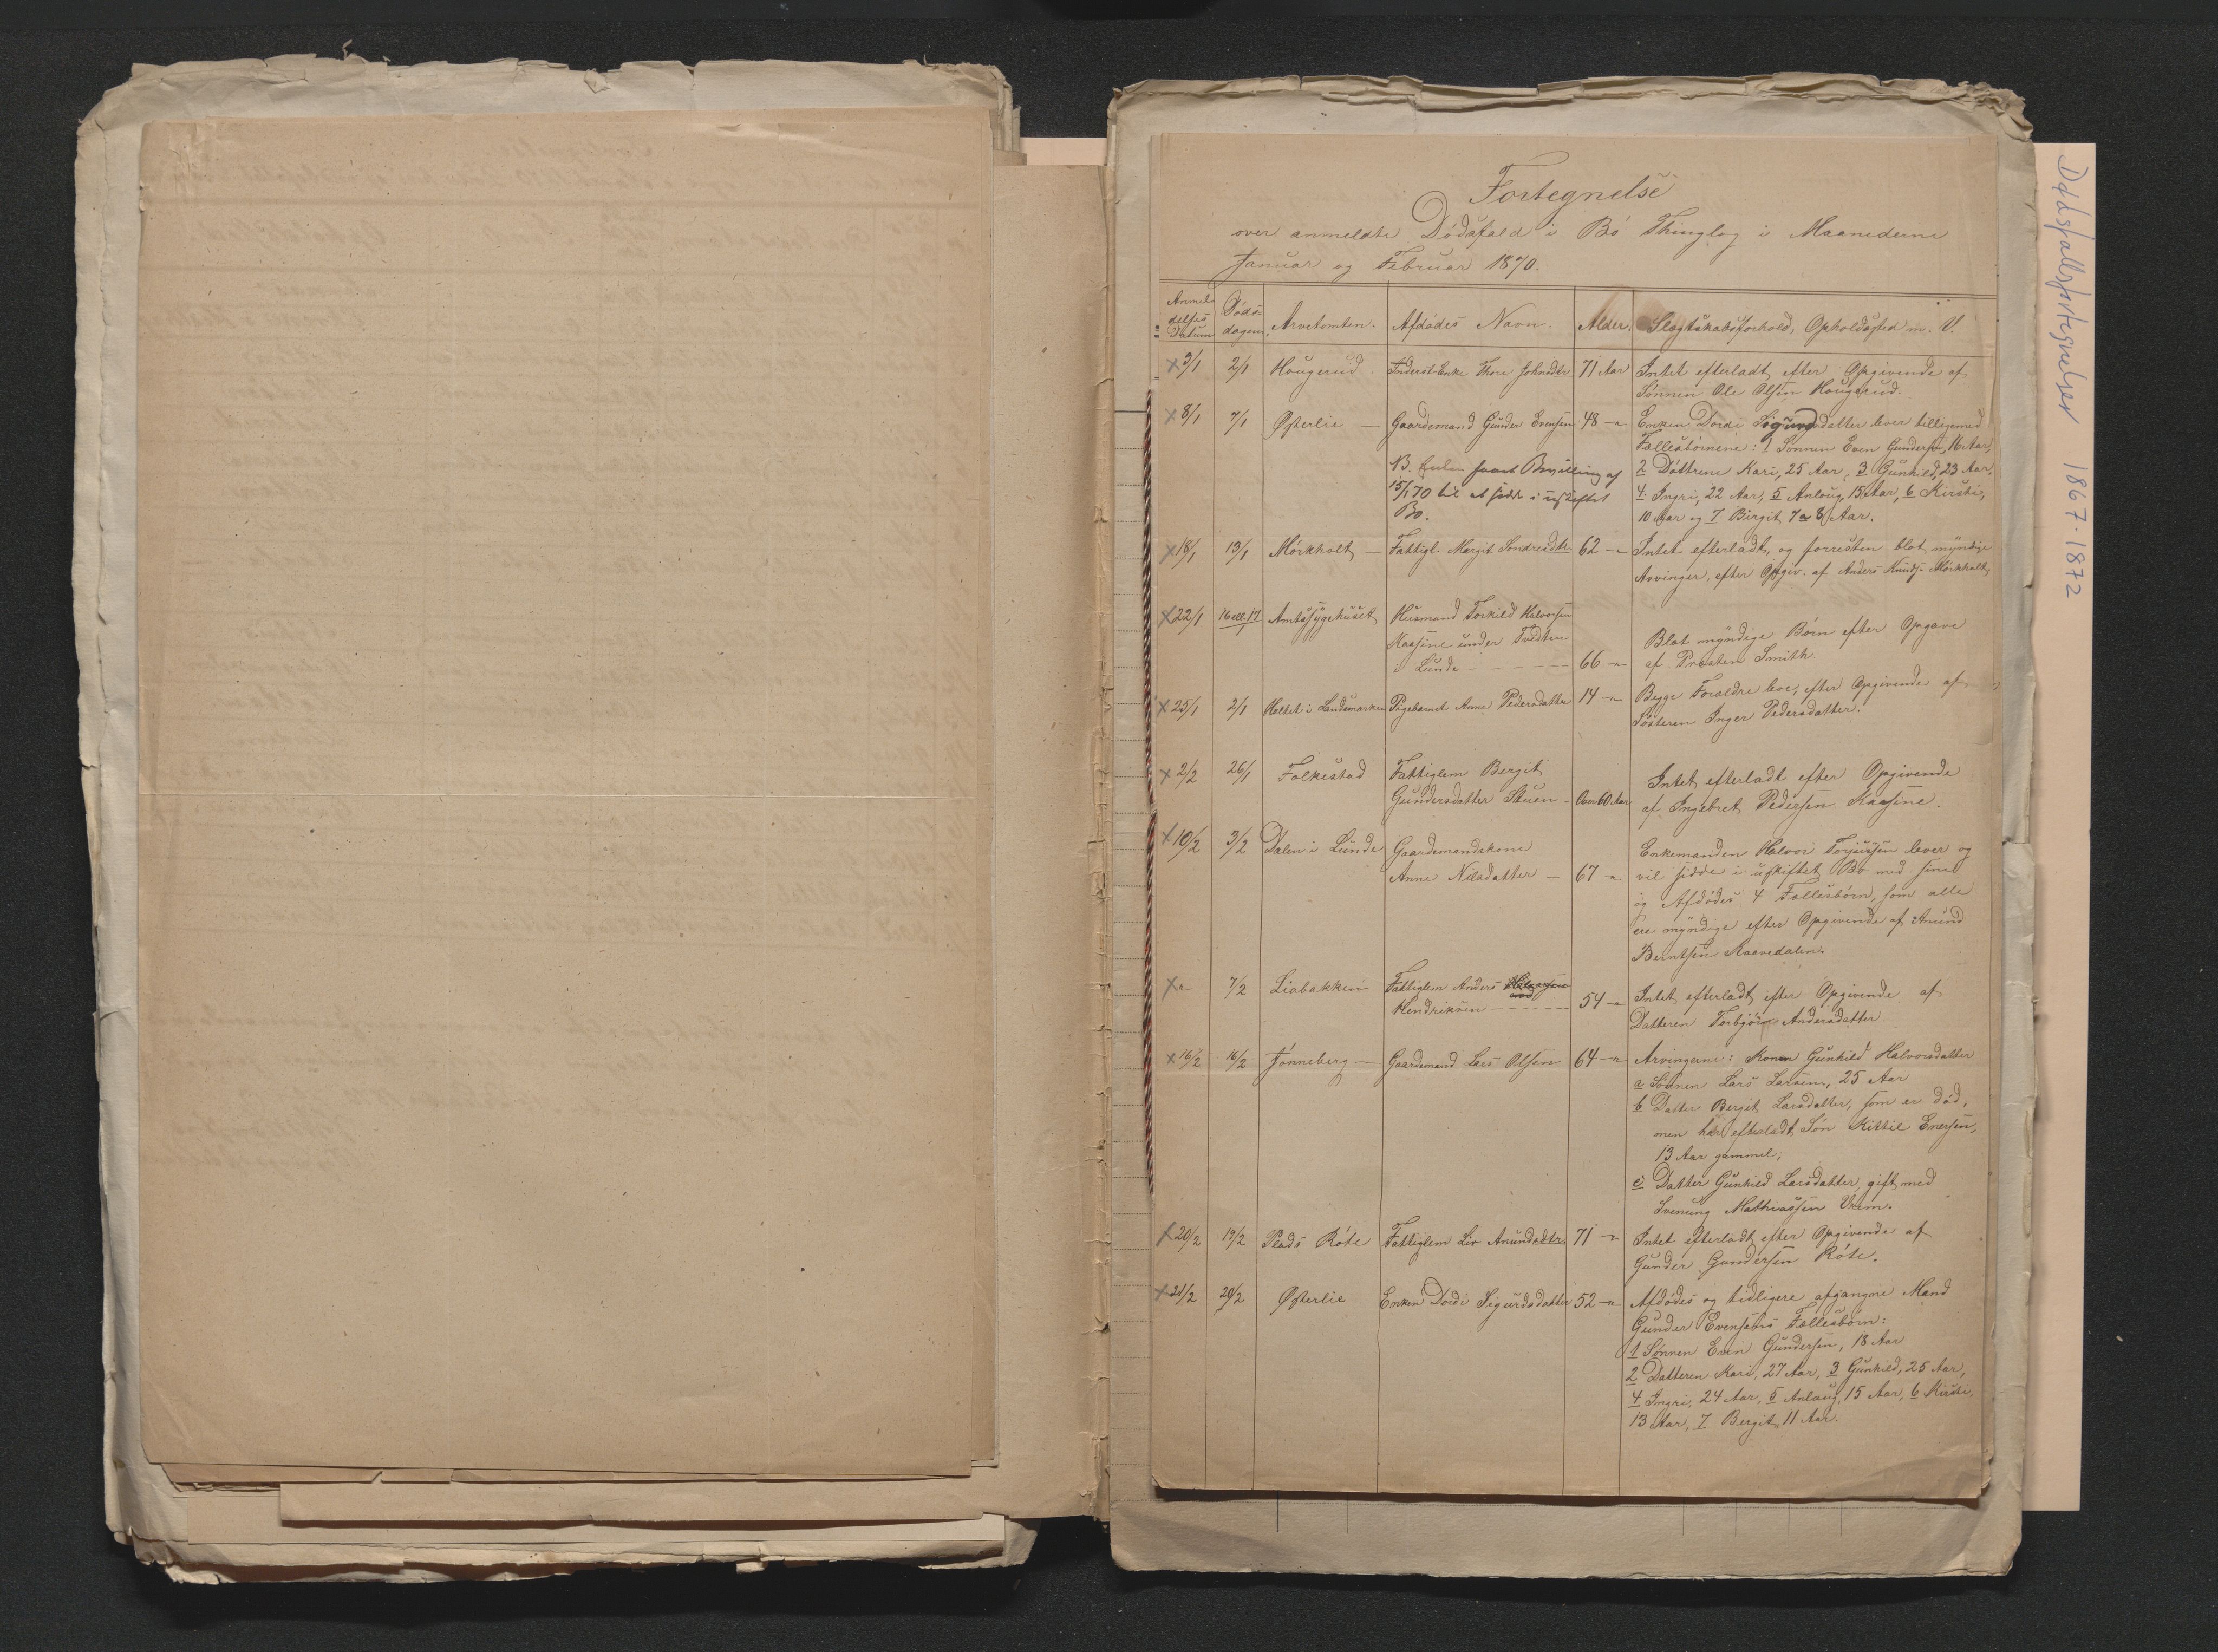 Dødsfallsfortegnelser 1867-1872
Fortegnelse
over anmeldte Dødsfald i Bø Thinglag i Maanederne
Januar og Februar 1870.
Anmel-
delses
Datum
Døds-
dagen.
Arvetomten.
Afdødes Navn.
Alder.
Slægtskabsforhold, Opholdssted m. V.
x 3/1 2/1 Hougerud Inderst-Enke Thore Johnsdtr 71 Aar Intet efterladt efter Opgivende af
Sønnen Ole Olsen Hougerud.
x 8/1 7/1 Østerlie — Gaardemand Gunder Evensen 48 -"- Enken Dordi Sigurdsdatter lever tilligemed
Fællesbørnene: 1 Sønnen Even Gundersen, 16 Aar,
2 Døttrene Kari, 25 Aar, 3 Gunhild, 23 Aar,
4. Ingri, 22 Aar, 5 Anloug, 15 Aar, 6 Kirsti,
10 Aar og 7 Birgit, 7 a 8 Aar.
NB. Enken faaet Bevilling af
15/1 70 til at sidde i uskiftet
Bo.
x 18/1 13/1 Mørkholt — Fattigl. Margit Sondresdtr 62 -"- Intet efterladt, og forresten blot myndige
Arvinger, efter Opgiv. af Anders Knuds. Mørkholt.
x 22/1 16 ell. 17/1 Amtssygehuset Husmand Torkild Halvorsen
Kaasine under Tvedten
i Lunde - - - - - 66 -"-
Blot myndige Børn efter Opgave
af Præsten Smith.
x 25/1 2/1 Holtet i Landsmarken Pigebarnet Anne Pedersdatter 14 -"- Begge Forældre leve, efter Opgivende af
Søsteren Inger Pedersdatter.
x 2/2 26/1 Folkestad Fattiglem Bergit
Gundersdatter Stuen - Over 60 Aar
Intet efterladt efter Opgivende
af Ingebret Pedersen Kaasine.
x 10/2 3/2 Dalen i Lunde Gaardemandskone
Anne Nilsdatter — 67 -"-
Enkemanden Halvor Torjussen lever og
vil sidde i uskiftet Bo med sine
og Afdødes 4 Fællesbørn, som alle
ere myndige efter Opgivende af Anund
Berntsen Raavedalen.
x -"- 7/2 Liabakken Fattiglem Anders
Hendriksen - - - - - 54 -"- Intet efterladt efter Opgivende af
Datteren Torbjør Andersdatter
x 16/2 16/2 Jønneberg — Gaardemand Lars Olsen 64 -"- Arvingerne: Konen Gunhild Halvorsdatter
a Sønnen Lars Larsen, 25 Aar
b Datter Bergit Larsdatter, som er død,
men har efterladt Søn Kittil Enersen,
13 Aar gammel;
c Datter Gunhild Larsdatter, gift med
Svenung Mathiassen
x 20/2 19/2 Plads Røte Fattiglem Liv Anundsdtr 71 -"- Intet efterladt efter Opgivende af
Gunder Gundersen Røte.
x 21/2 20/2 Østerlie Enken Dordi Sigurdsdatter 52 -"- Afdødes og tidligere afgangne Mand
Gunder Evensens Fællesbørn:
1 Sønnen Even Gundersen, 18 Aar
2 Datteren Kari, 27 Aar, 3 Gunhild, 25 Aar,
4 Ingri, 24 Aar, 5 Anlaug, 15 Aar, 6 Kirsti,
13 Aar, 7 Bergit, 11 Aar.